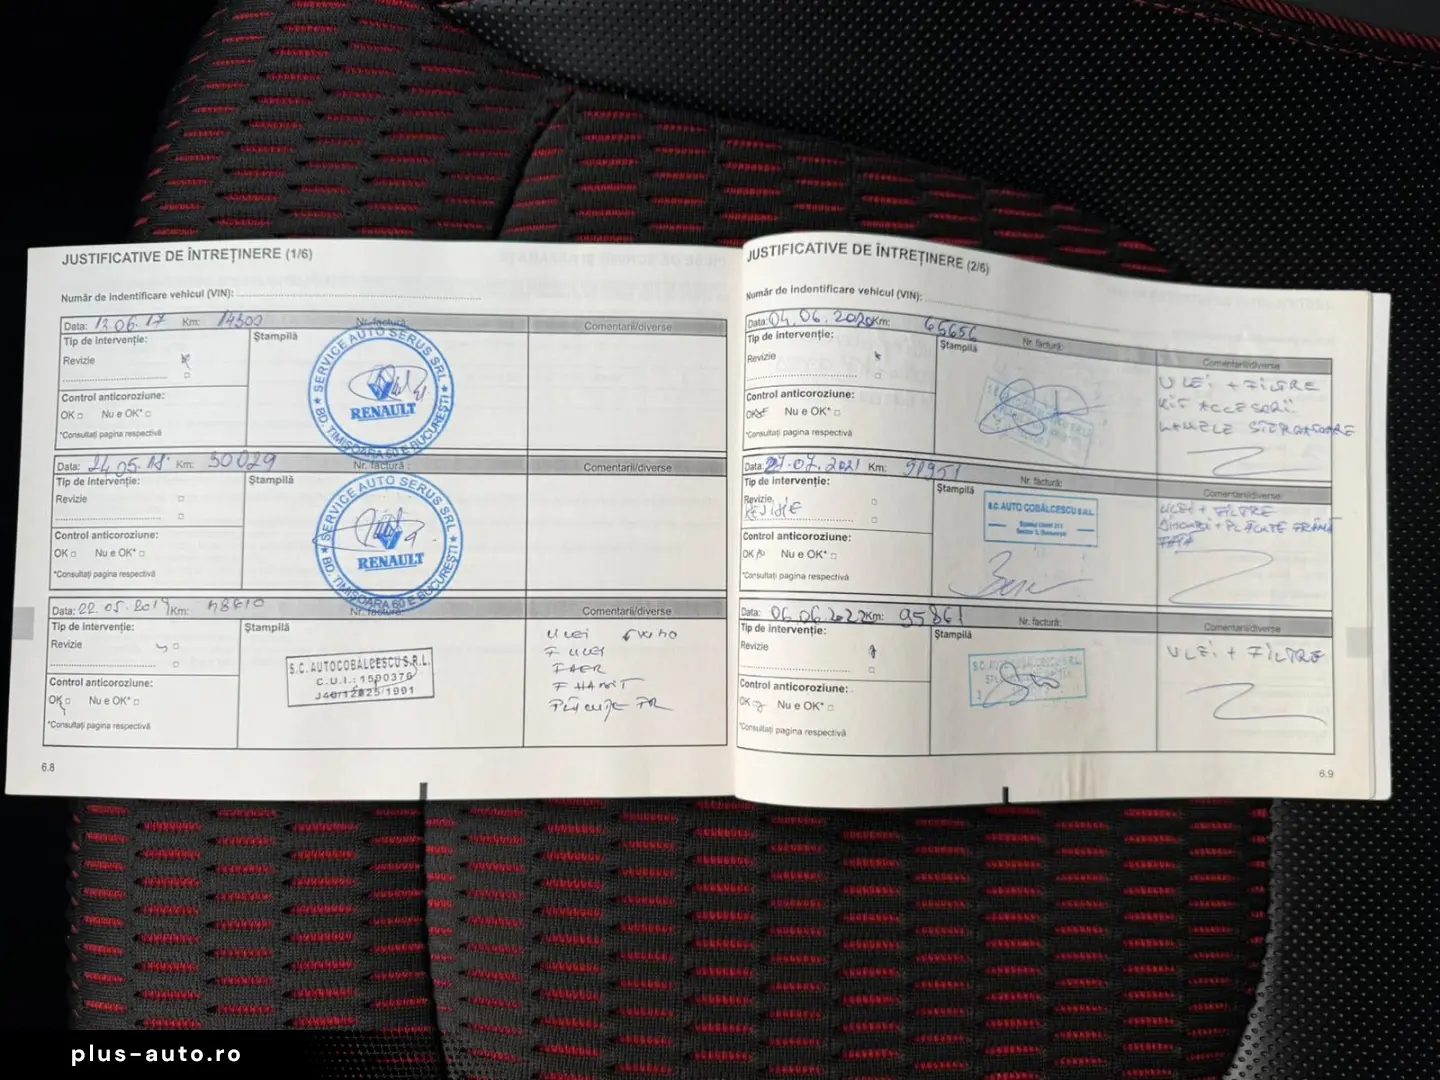 JUSTIFICATIVE DE ÎNTREȚINERE (1/6)
Număr de indentificare vehicul (VIN):
Data: 13.06.17 Km: 14300 Nr. factură: Comentarii/diverse
Tip de intervenție: Ștampilă
Revizie
Control anticoroziune:
OK Nu e OK*
*Consultați pagina respectivă
SERVICE AUTO SERUS SRL
RENAULT
BD. TIMISOARA 60 E BUCUREȘTI
Data: 24.05.18 Km: 30029 Nr. factură: Comentarii/diverse
Tip de intervenție: Ștampilă
Revizie
Control anticoroziune:
OK Nu e OK*
*Consultați pagina respectivă
SERVICE AUTO SERUS SRL
RENAULT
BD. TIMISOARA 60 E BUCUREȘTI
Data: 22.05.2019 Km: 48610 Nr. factură: Comentarii/diverse
Tip de intervenție: Ștampilă
Revizie
Control anticoroziune:
OK Nu e OK*
*Consultați pagina respectivă
S.C. AUTOCOBĂLCESCU S.R.L.
C.U.I.: 1590376
J40/12025/1991
ULEI
F ULEI
F AER
F HABIT
PLĂCUȚE FR
6.8
JUSTIFICATIVE DE ÎNTREȚINERE (2/6)
Număr de indentificare vehicul (VIN):
Data: 04.06.2020 Km: 65656 Nr. factură: Comentarii/diverse
Tip de intervenție: Ștampilă
Revizie
Control anticoroziune:
OK Nu e OK*
*Consultați pagina respectivă
ULEI + FILTRE
KIT ACCESORII
LAMELE STERGATOARE
Data: 27.07.2021 Km: 91951 Nr. factură: Comentarii/diverse
Tip de intervenție: Ștampilă
Revizie
REVIZIE
Control anticoroziune:
OK Nu e OK*
*Consultați pagina respectivă
S.C. AUTO COBĂLCESCU S.R.L.
ULEI + FILTRE
DISCURI + PLĂCUTE FRÂNĂ
FATA
Data: 06.06.2022 Km: 95861 Nr. factură: Comentarii/diverse
Tip de intervenție: Ștampilă
Revizie
Control anticoroziune:
OK Nu e OK*
*Consultați pagina respectivă
ULEI + FILTRE
6.9
plus-auto.ro